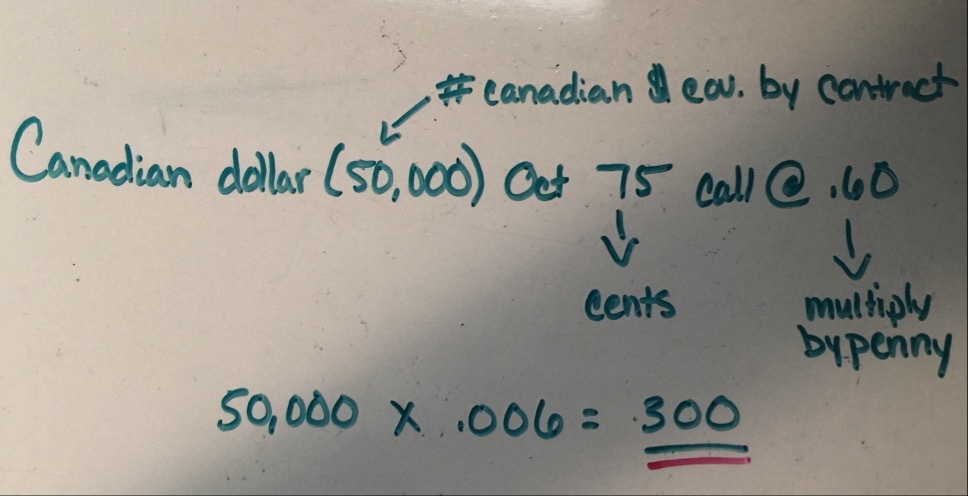 # canadian $ cov. by contract
Canadian dollar (50,000) Oct 75 call @ .60
cents
multiply
by penny
50,000 x .006 = 300